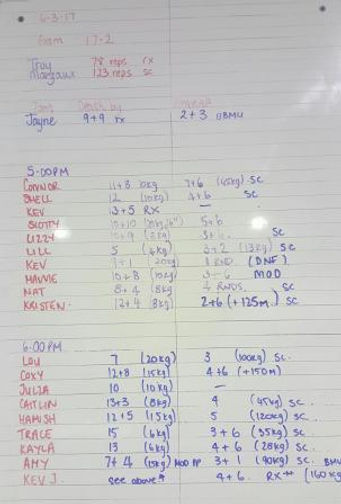 6-3-17
17-2
Troy 78 reps rx
123 reps sc
Death by
Jayne 9+9 rx 2+3
5:00PM
CONNOR 11+8 7+6 (45kg) SC
SHELL 12 (10kg) 4+6 SC
KEV 13+5 RX -
SCOTTY 5+6
LIZZY SC
LILL 5 (6kg) 3+2 (13kg) SC
KEV (20kg) RND. (DNF)
10+8 (10kg) MOD
NAT 8+4 (8kg RNDS. SC
KRISTEN 12+4 (8kg) 2+6 (+125m) SC
6:00PM
LOU 7 (20kg) 3 (100kg) SC.
COXY 12+8 (15kg) 4+6 (+150m)
JULIA 10 (10kg) -
CAITLIN 13+3 (8kg) 4 (45kg) SC.
HAMISH 12+5 (15kg) 5 (120kg) SC.
TRACE 15 (6kg) 3+6 (35kg) SC.
KAYLA 13 (6kg) 4+6 (28kg) SC.
AMY 7+4 (15kg) MOD PP 3+1 (90kg) SC. BMU
KEV J. see above* 4+6. RX** (160kg